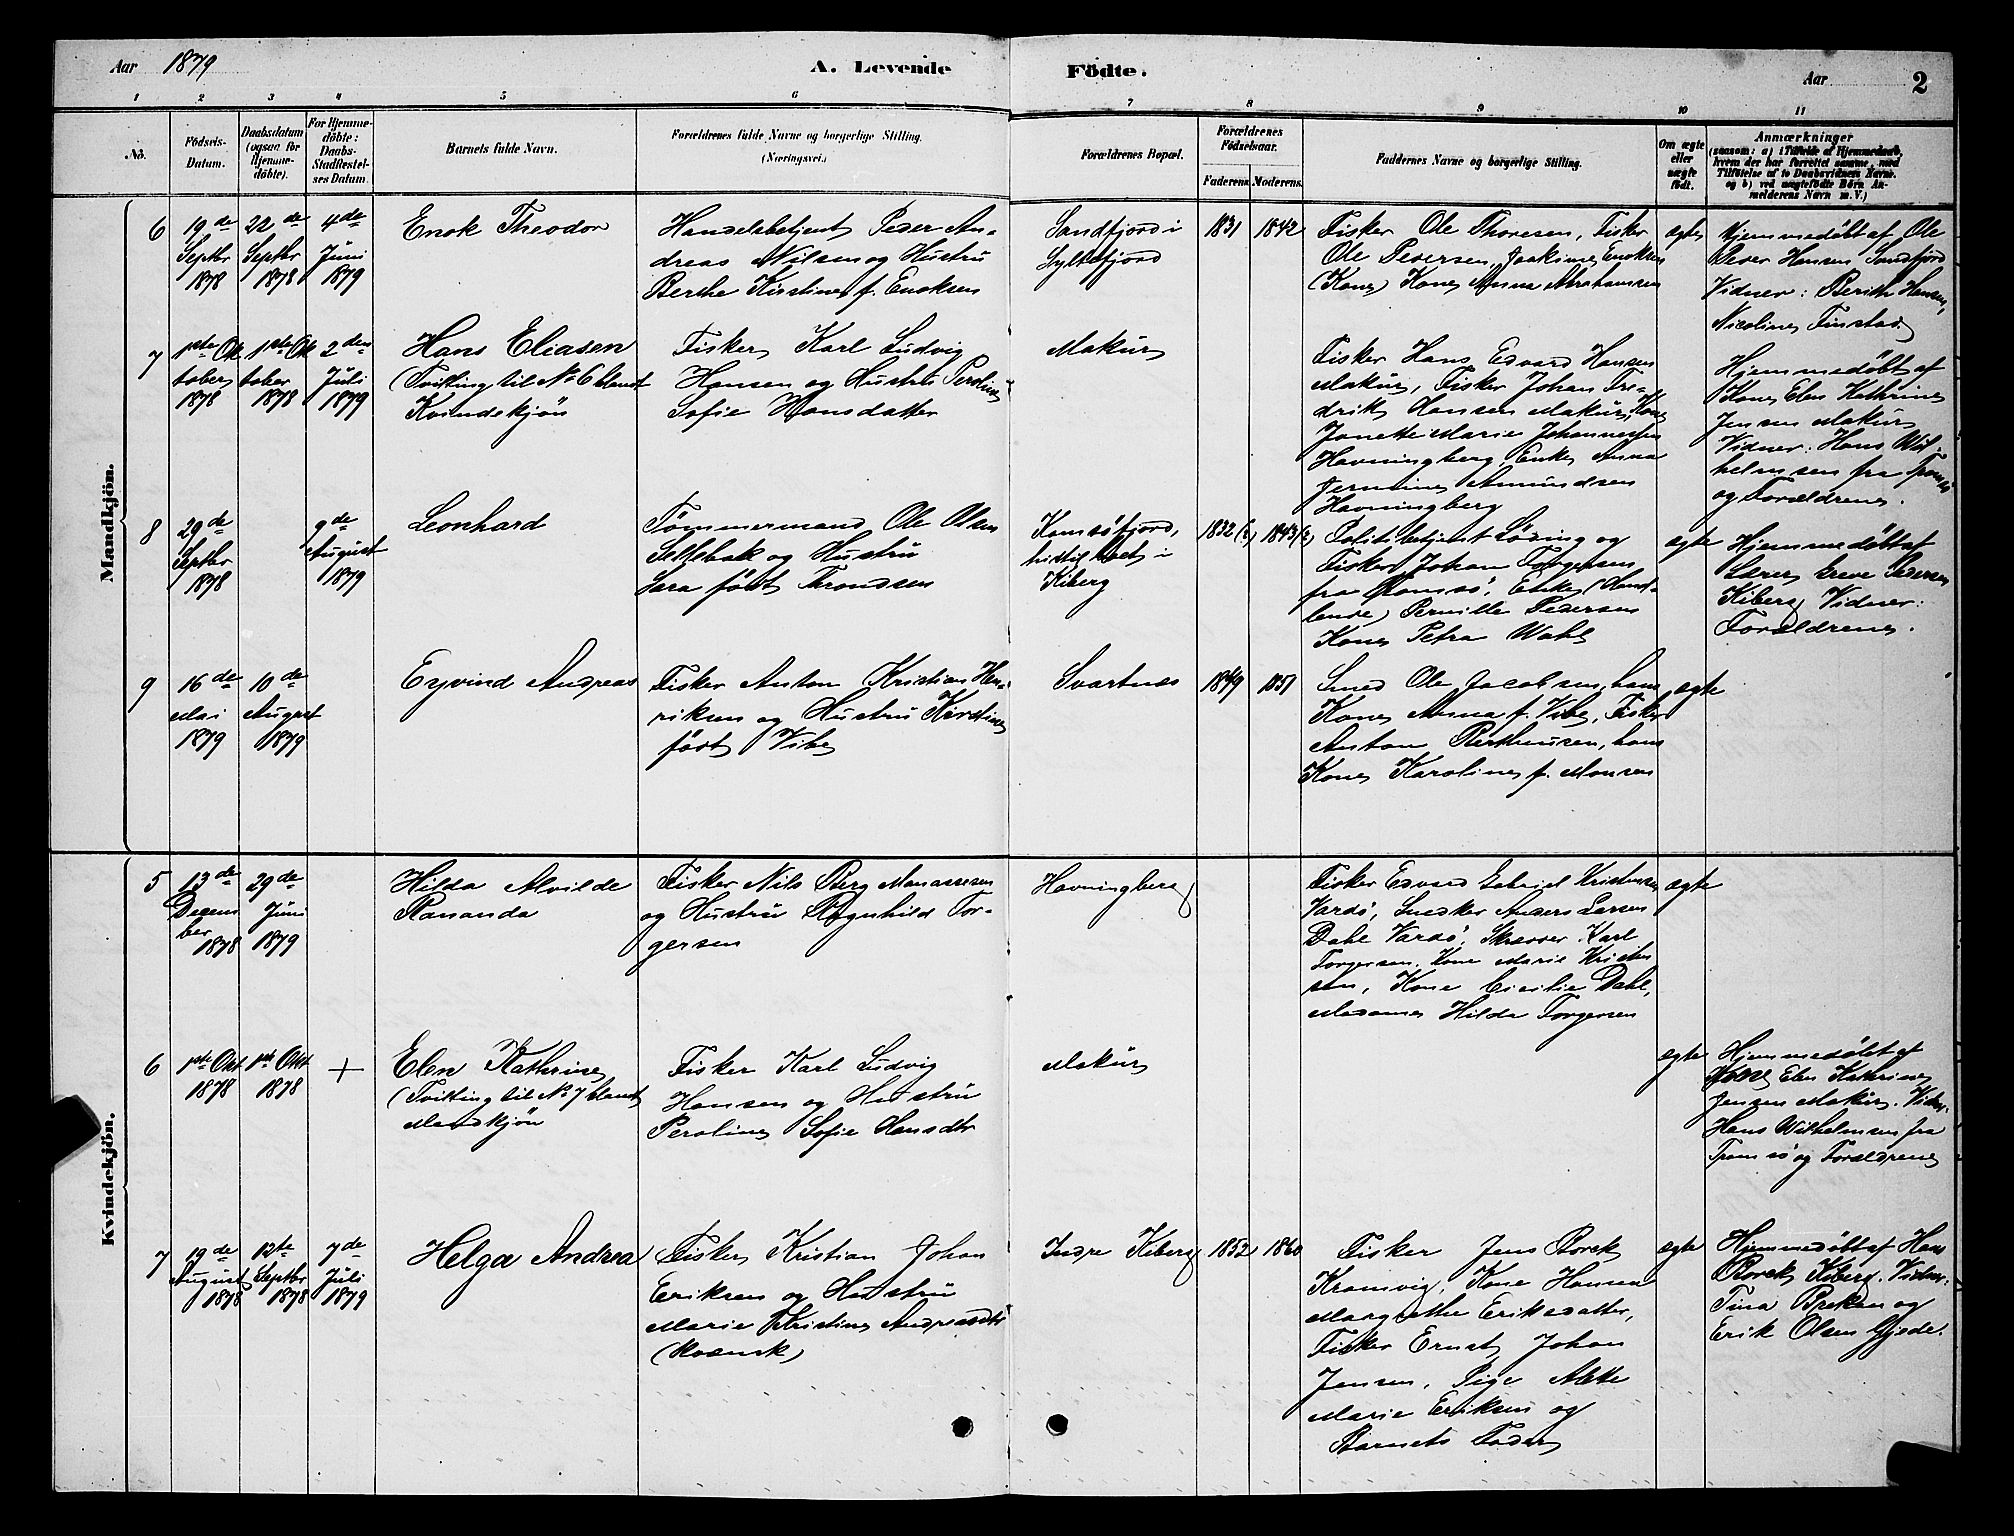 Aar 1879
A. Levende Födte.
Aar 2
1 2 3 4 5 6 7 8 9 10 11
No.
Födsels-
Datum.
Daabsdatum
(ogsaa for
Hjemme-
döbte).
For Hjemme-
döbte:
Daabs-
Stadfæstel-
ses Datum.
Barnets fulde Navn.
Forældrenes fulde Navne og borgerlige Stilling.
(Næringsvei.)
Forældrenes Bopæl.
Forældrenes
Födselsaar.
Faderens. Moderens.
Faddernes Navne og borgerlige Stilling.
Om ægte
eller
uægte
födt.
Anmærkninger
(saasom: a) i Tilfælde af Hjemmedaab,
hvem der har forrettet samme, med
Tilföielse af to Daabsvidners Navne.
og b) ved uægtefödte Börn An-
melderens Navn m. V.)
Mandkjön.
6
19de
Septbr
1878
22de
Septbr
1878
4de
Juni
1879
Enok Theodor
Handelsbetjent Peder An-
dreas Nilsen og Hustru
Berthe Kirstine f. Enoksen
Sandfjord i
Syltefjord
1831
1842
Fisker Ole Thoresen, Fisker
Ole Pedersen, Joakime Enoksen
(Kone) Kone Anna Abrahamsen
ægte
Hjemmedøbt af Ole
Peder Hansen Sandfjord
Vidner: Berith Hansen,
Nicoline Finstad
7
1ste Ok
tober
1878
1ste Ok
tober
1878
2den
Juli
1879
Hans Eliasen
(Tvilling til No 6 blandt
Kvindekjön
Fisker Karl Ludvig
Hansen og Hustru Peroline
Sofie Hansdatter
Makur
Fisker Hans Edvard Hansen
Makur, Fisker Johan Fre-
drik Hansen Makur, Kone
Jonette Marie Johannessen
Havningberg, Enke Anna
Jermine Amundsen
Havningberg
Hjemmedøbt af
Kone Elen Kathrine
Jensen Makur
Vidner: Hans Wil-
helmsen fra Tromsö
og Forældrene.
8
29de
Septbr
1878
9de
August
1879
Leonhard
Tømmermand Ole Olsen
Sellebak og Hustru
Sara født Trondsen
Komsöfjord,
hidtil boet i
Kiberg
1832(?)
1843(?)
Politibetjent Løding og
Fisker Johan Torgersen
fra Tromsö, Enke (Hand-
lende) Pernille Pedersen
Kone Petra Wahl
ægte
Hjemmedøbt af
Lærer Greve Pedersen
Kiberg Vidner:
Forældrene.
9
16de
Mai
1879
10de
August
1879
Eyvind Andreas
Fisker Anton Kristian Hen-
riksen og Hustru Kirstine
født Vibe
Svartnes
1849
1851
Smed Ole Jacobsen, hans
Kone Anna f. Vibe, Fisker
Anton Bertheusen, hans
Kone Karoline f. Monsen
ægte
Kvindekjön.
5
13de
Decem
ber
1878
29de
Juni
1879
Hilda Alvilde
Rananda
Fisker Nils Berg Manassesen
og Hustru Ragnhild Tor-
gersen
Havningberg
Fisker Edvard Gabriel Kristensen
Vardö, Snedker Anders Larsen
Dahl Vardö, Skræder Karl
Torgersen, Kone Marie Kristen
sen, Kone Cicilie Dahl,
Madame Hilda Torgersen
ægte
6
1ste Okt
1878
1ste Okt
1878
+
Elen Kathrine
(Tvilling til No 7 blandt
Mandkjön
Fisker Karl Ludvig
Hansen og Hustru
Peroline Sofie Hansdtr
Makur
ægte
Hjemmedøbt af
Kone Elen Kathrine
Jensen Makur. Vidn:
Hans Wilhelmsen fra
Tromsö og Forældrene
7
19de
August
1878
12te
Septbr
1878
7de
Juli
1879
Helga Andrea
Fisker Kristian Johan
Eriksen og Hustru
Marie Kristine Andreasdtr
(Kvænsk)
Indre Kiberg
1852
1860
Fisker Jens Borck
Kramvig, Kone Hanna
Margrethe Eriksdatter,
Fisker Ernst Johan
Jensen, Pige Alette
Marie Eriksen og
Barnets Fader
ægte
Hjemmedøbt af Hans
Borck Kiberg. Vidn:
Tina Breken og
Erik Olsen Gjede.